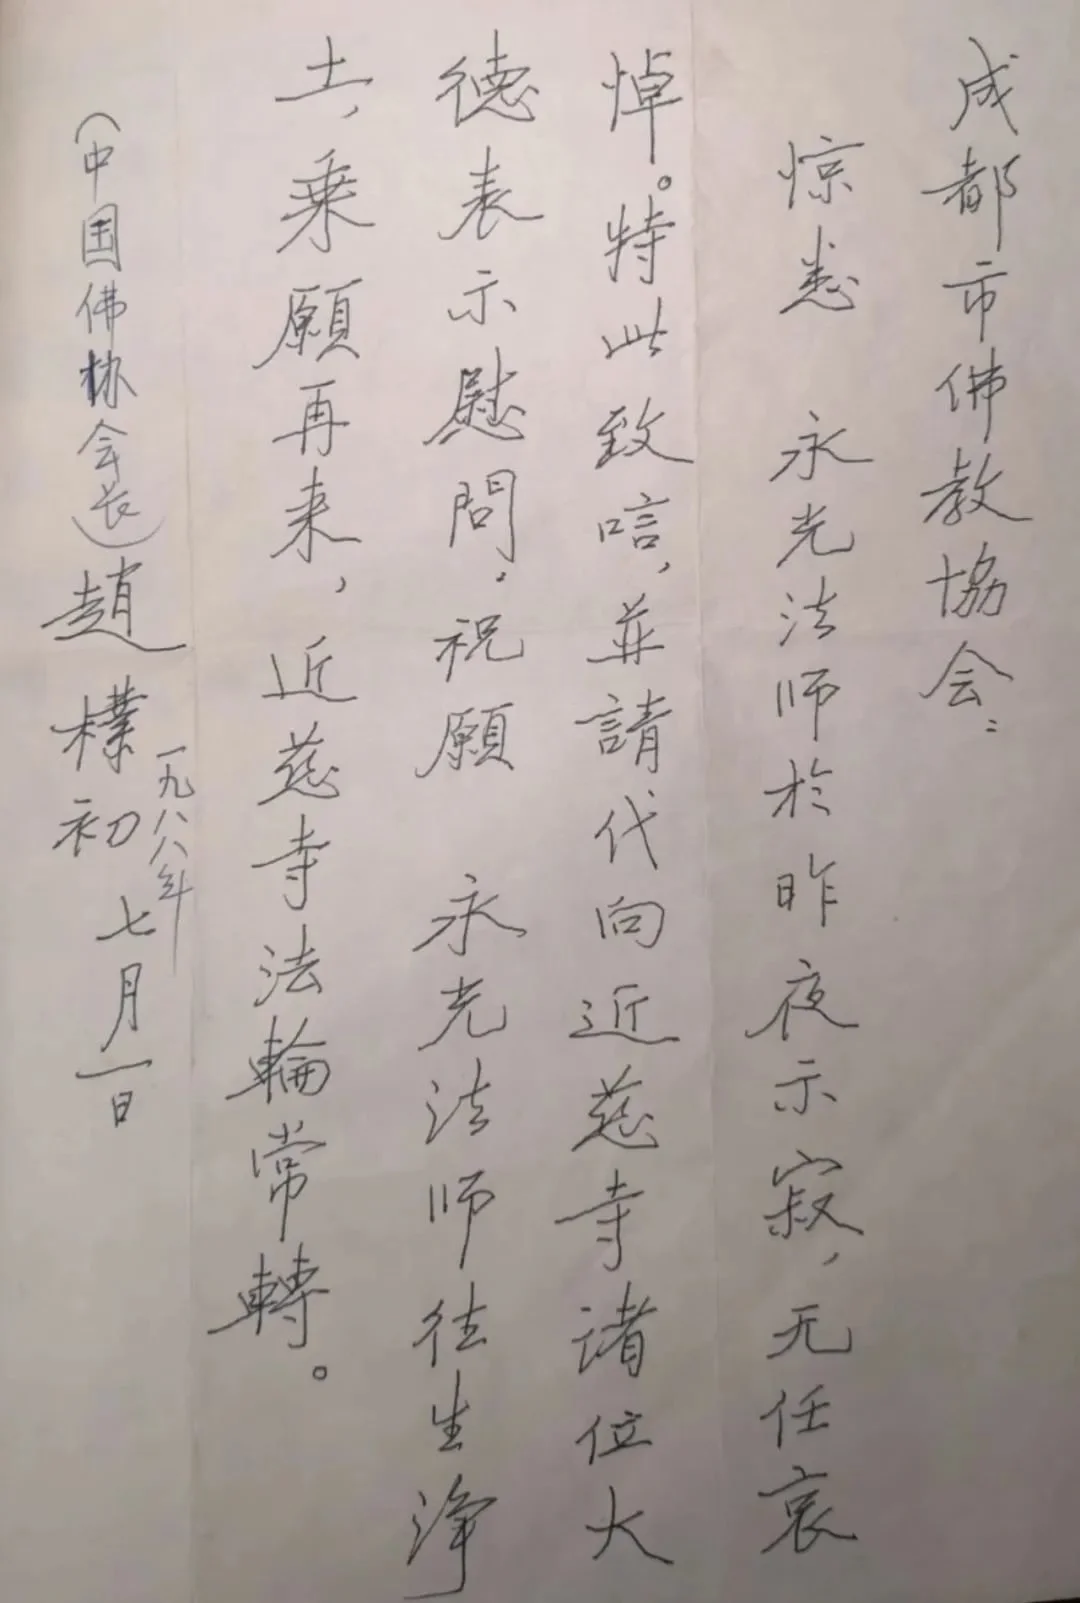 成都市佛教協会：
惊悉 永光法师於昨夜示寂，无任哀
悼。特此致唁，並請代向近慈寺诸位大
德表示慰問，祝願 永光法师往生净
土，乘願再来，近慈寺法輪常轉。
（中国佛协会长）趙樸初
一九八八年
七月一日